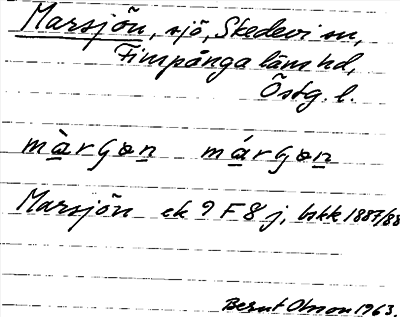 Marsjön, sjö, Skedevi sn,
Finspånga läns hd,
Östg. l.
màrʃɷn márʃɷn
Marsjön ek 9 F 8 j, bskk 1887/88
Bernt Olsson 1963.